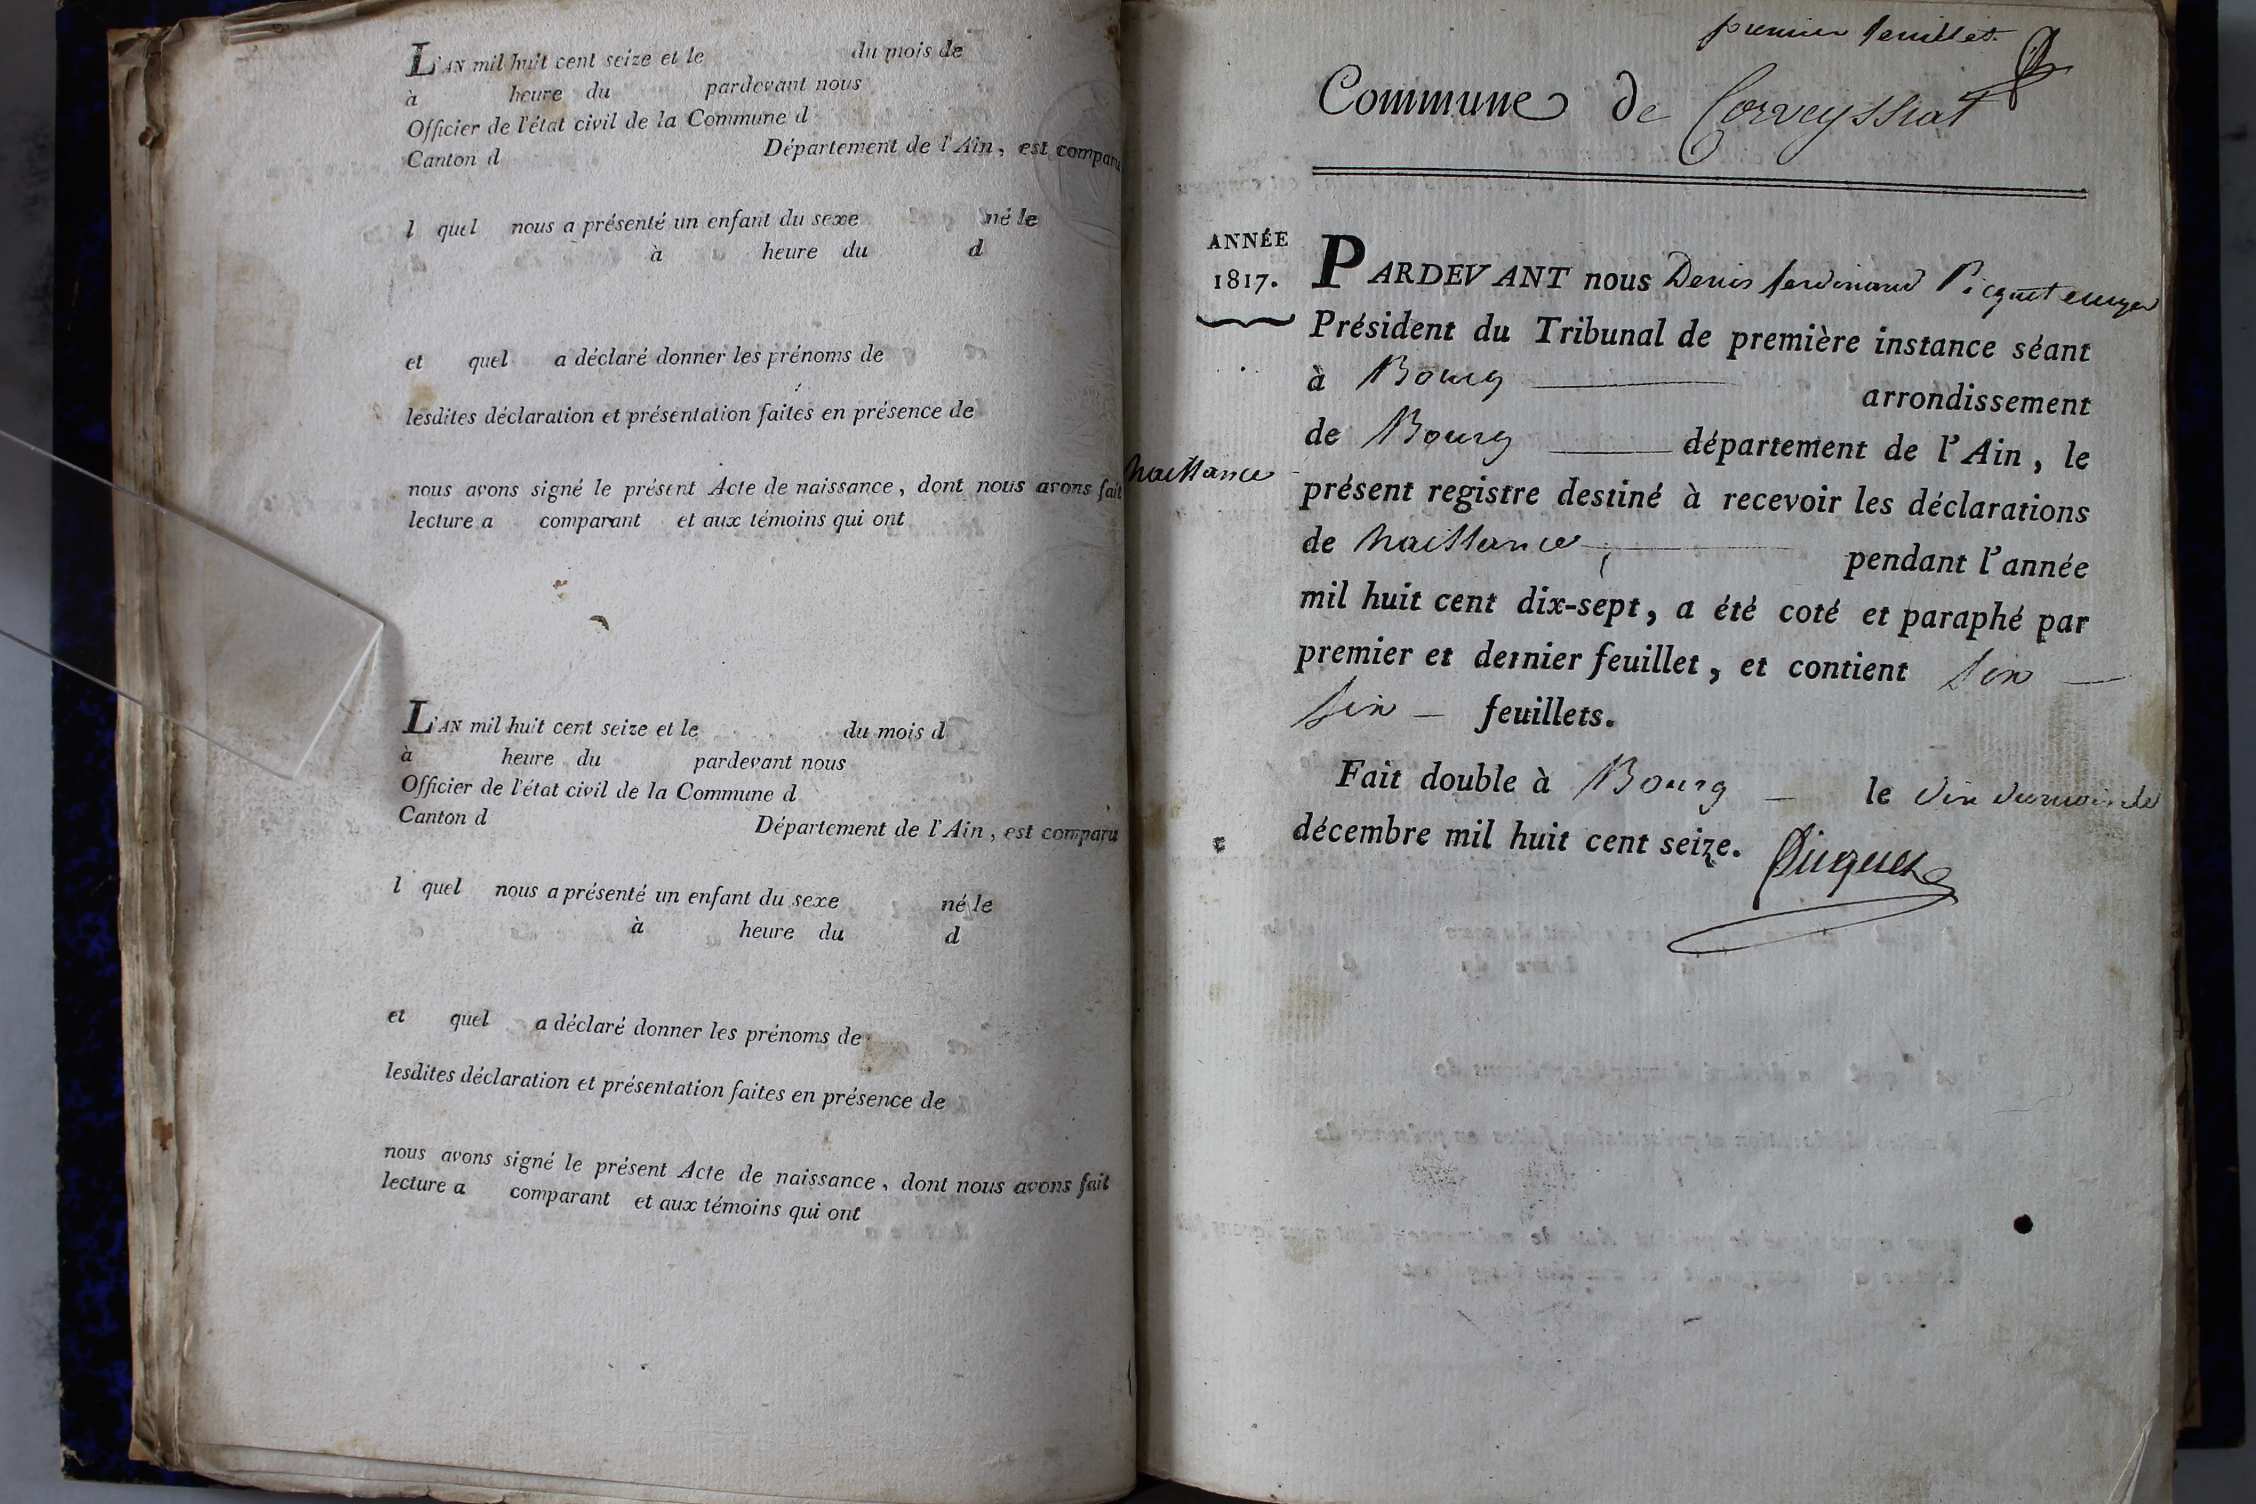 L'AN mil huit cent seize et le du mois de
à heure du pardevant nous
Officier de l'état civil de la Commune d
Canton d Département de l'Ain, est comparu
l quel nous a présenté un enfant du sexe né le
à heure du d
et quel a déclaré donner les prénoms de
lesdites déclaration et présentation faites en présence de
nous avons signé le présent Acte de naissance, dont nous avons fait
lecture a comparant et aux témoins qui ont
L'AN mil huit cent seize et le du mois d
à heure du pardevant nous
Officier de l'état civil de la Commune d
Canton d Département de l'Ain, est comparu
l quel nous a présenté un enfant du sexe né le
à heure du d
et quel a déclaré donner les prénoms de
lesdites déclaration et présentation faites en présence de
nous avons signé le présent Acte de naissance, dont nous avons fait
lecture a comparant et aux témoins qui ont
premier feuillet.
Commune de Corveyssiat
ANNÉE
1817.
PARDEVANT nous Denis ferdinand Picquet ecuyer
Président du Tribunal de première instance séant
à Bourg arrondissement
de Bourg département de l'Ain, le
Naissance
présent registre destiné à recevoir les déclarations
de Naissance, pendant l'année
mil huit cent dix-sept, a été coté et paraphé par
premier et dernier feuillet, et contient six
six feuillets.
Fait double à Bourg le dix du mois de
décembre mil huit cent seize. Picquet